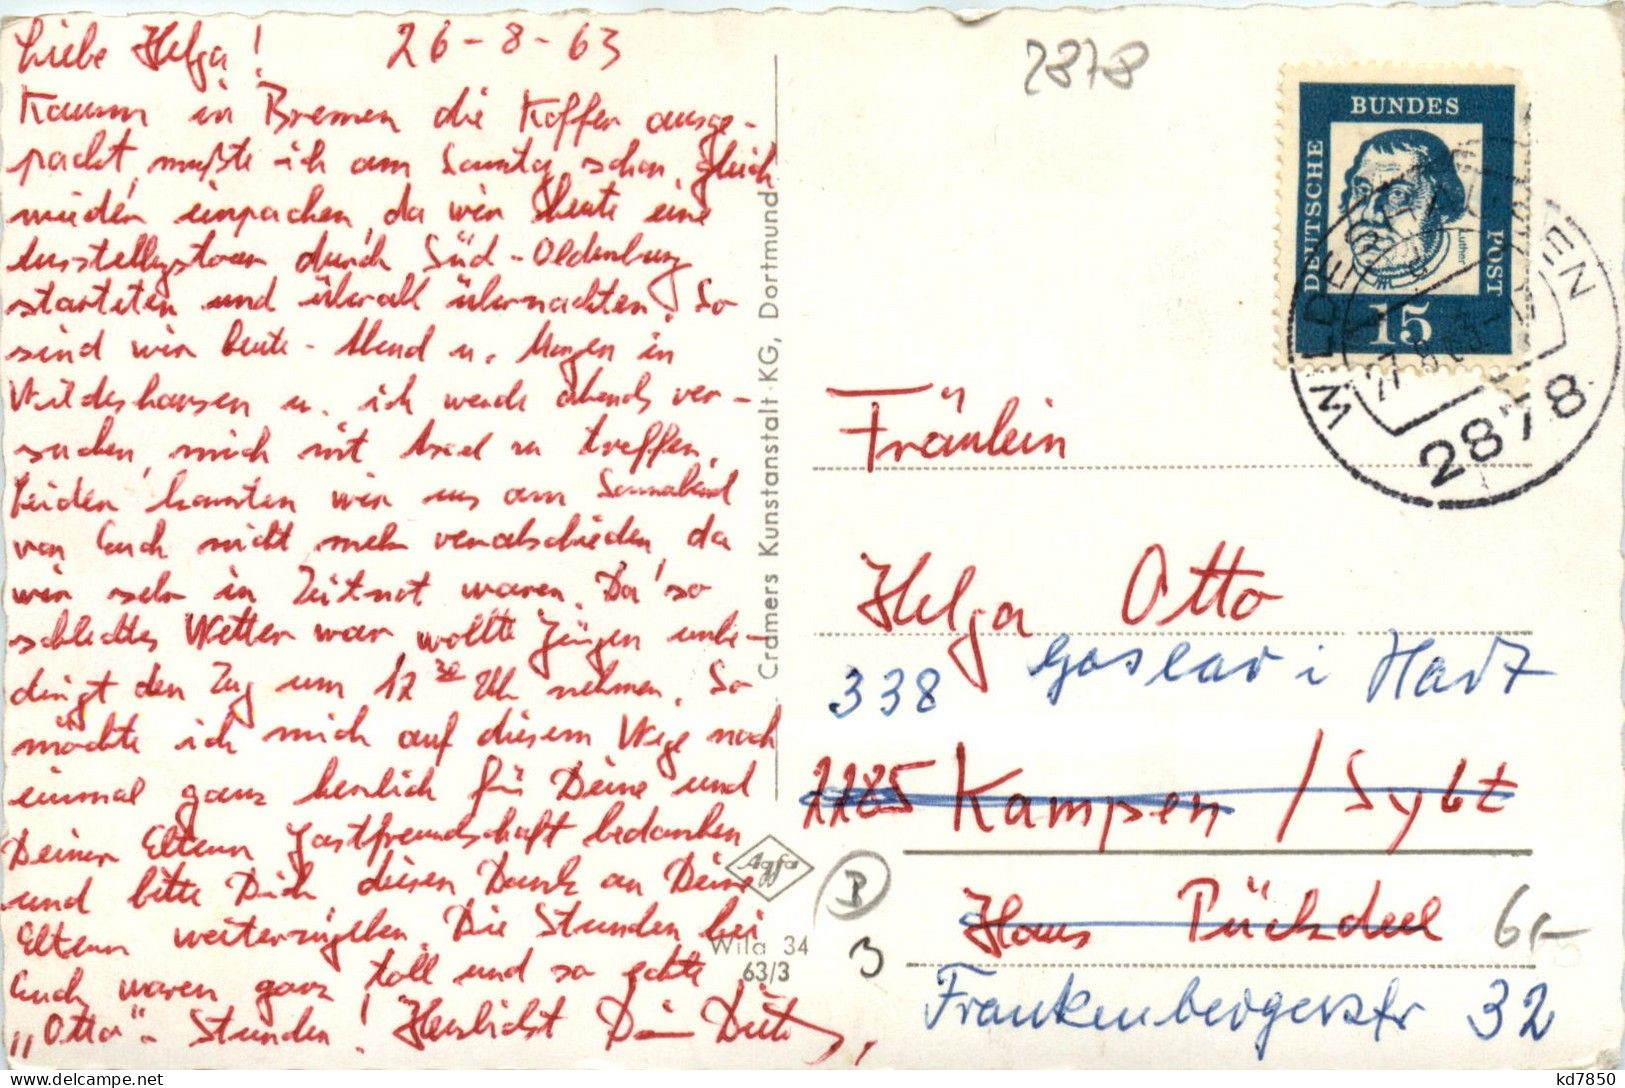 Liebe Helga! 26-8-63
Kaum in Bremen die Koffer ausge-
packt, mußte ich am Sonntag schon gleich
wieder einpacken, da wir heute eine
Ausstellgstour durch Süd-Oldenburg
starteten und überall übernachten. So
sind wir heute-Abend u. Morgen in
Wildeshausen u. ich werde abends ver-
suchen, mich mit Axel zu treffen.
Leider konnten wir uns am Sonnabend
von Euch nicht mehr verabschieden, da
wir sehr in Zeitnot waren. Da so
schlechtes Wetter war wollte Jürgen unbe-
dingt den Zug um 12 30 Uhr nehmen. So
möchte ich mich auf diesem Wege noch
einmal ganz herzlich für Deine und
Deiner Eltern Gastfreundschaft bedanken
und bitte Dich, diesen Dank an Deine
Eltern weiterzugeben. Die Stunden bei
Euch waren ganz toll und so echte
"Otto"-Stunden! Herzlichst Dein
Cramers Kunstanstalt KG, Dortmund
Agfa
Wila 34
63/3
2878
DEUTSCHE BUNDES POST
Luther
15
WILDESHAUSEN
27.8.63
2878
Fräulein
Helga Otto
338 Goslar i Harz
2285 Kampen / Sylt
Haus Pückdeel
Frankenbergerstr 32
B
3
6,-
kd7850